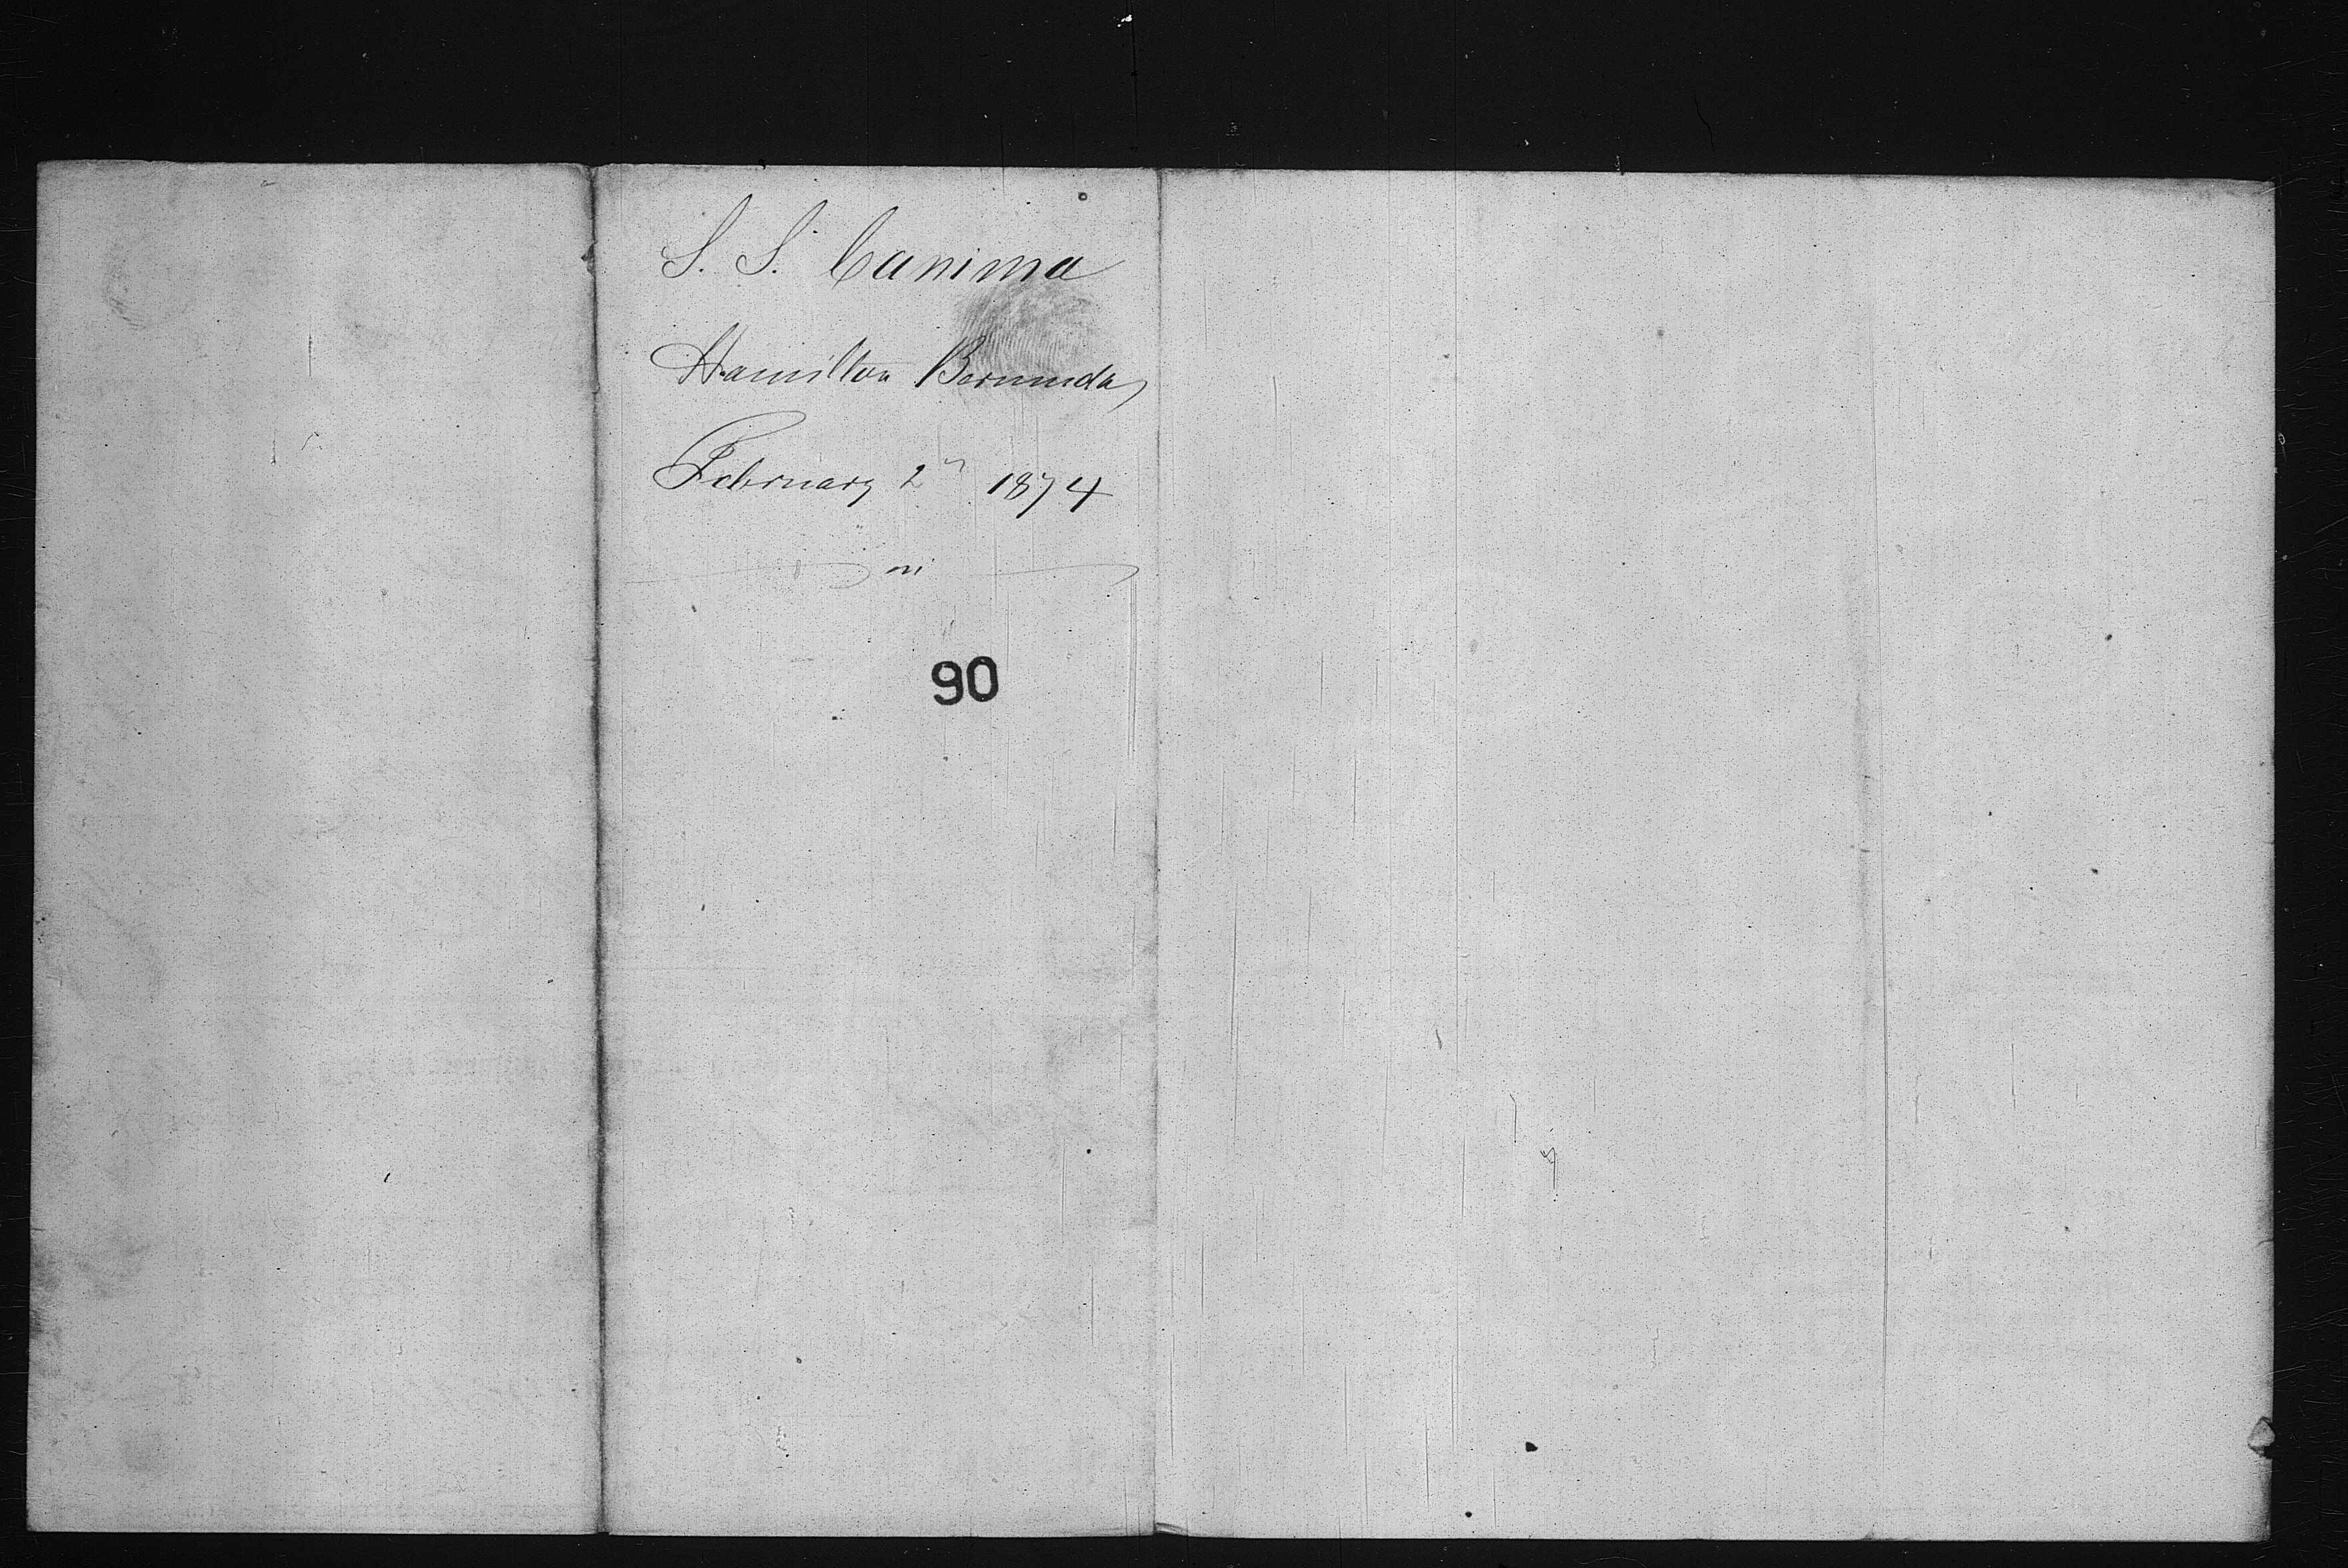 S. S. Canima
Hamilton Bermuda
February 2" 1874
90